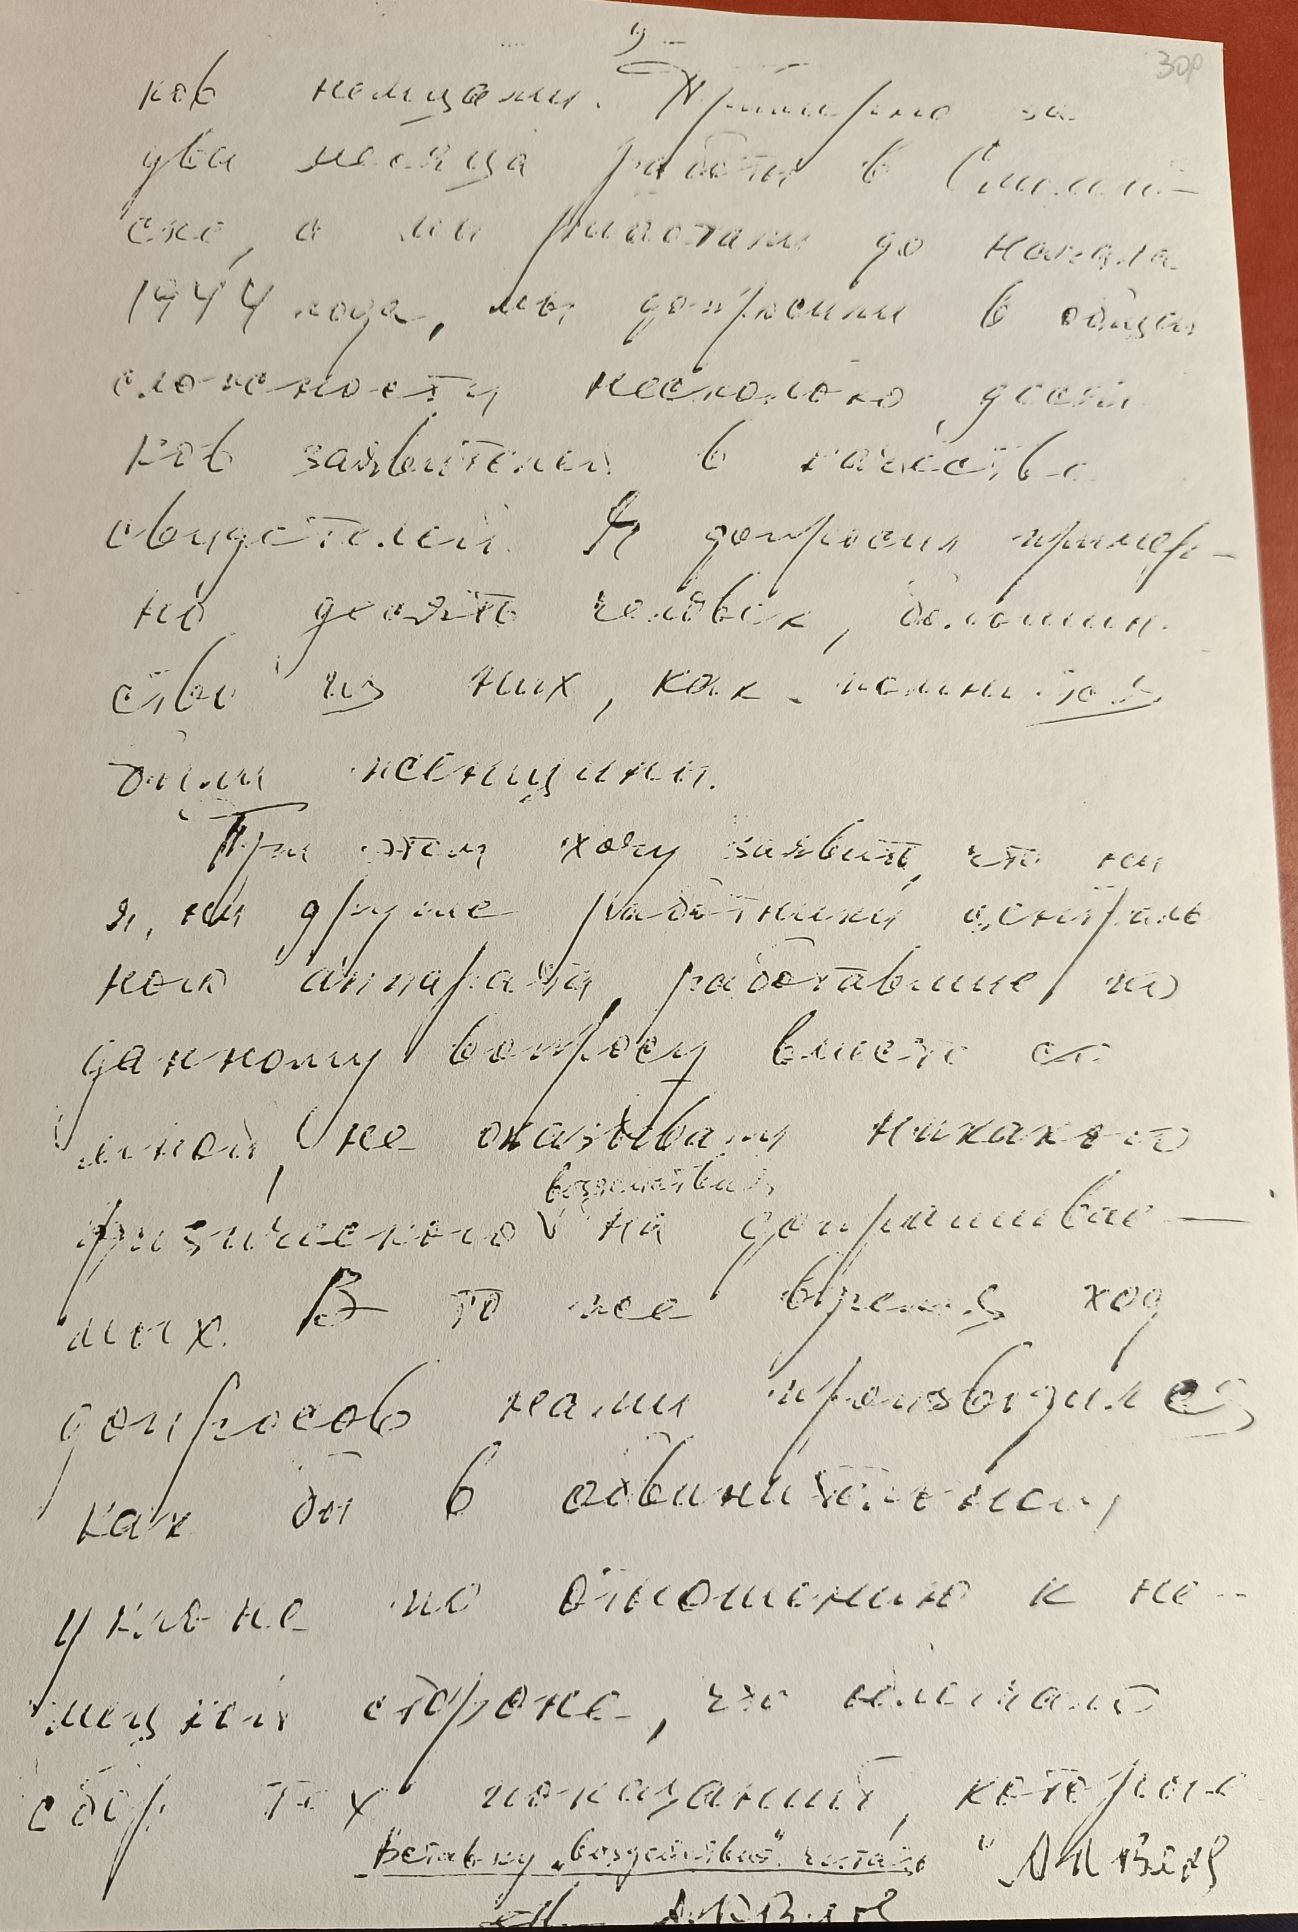 9
30р
ков немцами. Примерно за
два месяца работы в Смолен-
ске, а мы работали до начала
1944 года, мы допросили в общей
сложности несколько десят
ков заявителей в качестве
свидетелей. Я допросил пример-
но десять человек, большин
ство из них, как помнится
были женщины.
При этом хочу заявить, что ни
я, ни другие работники централь
ного аппарата, работавшие по
данному вопросу вместе со
мной, не оказывали никакого
воздействия
физического V на допрашивае-
мых. В то же время ход
допросов нами производился
как бы в обвинительном
уклоне по отношению к не-
мецкой стороне, что облегчало
сбор тех показаний, которые
Вставку „воздействия" читать